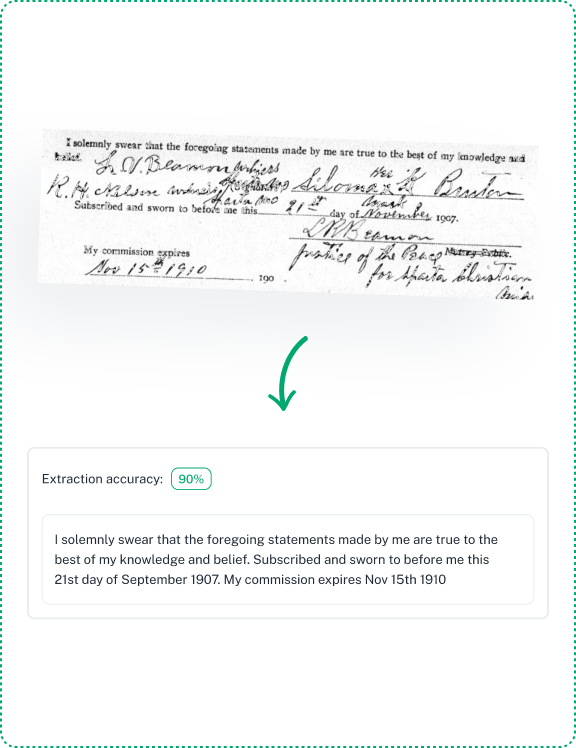 I solemnly swear that the foregoing statements made by me are true to the best of my knowledge and
belief. L. V. Beamon witness Her
R. H. Nelson witness Sparta Mo Siloma X Bruton
Subscribed and sworn to before me this 21st day of November 1907.
mark
L R Beamon
My commission expires Justice of the Peace Notary Public.
Nov 15th 1910 190 . for Sparta Christian
Extraction accuracy: 90%
I solemnly swear that the foregoing statements made by me are true to the
best of my knowledge and belief. Subscribed and sworn to before me this
21st day of September 1907. My commission expires Nov 15th 1910